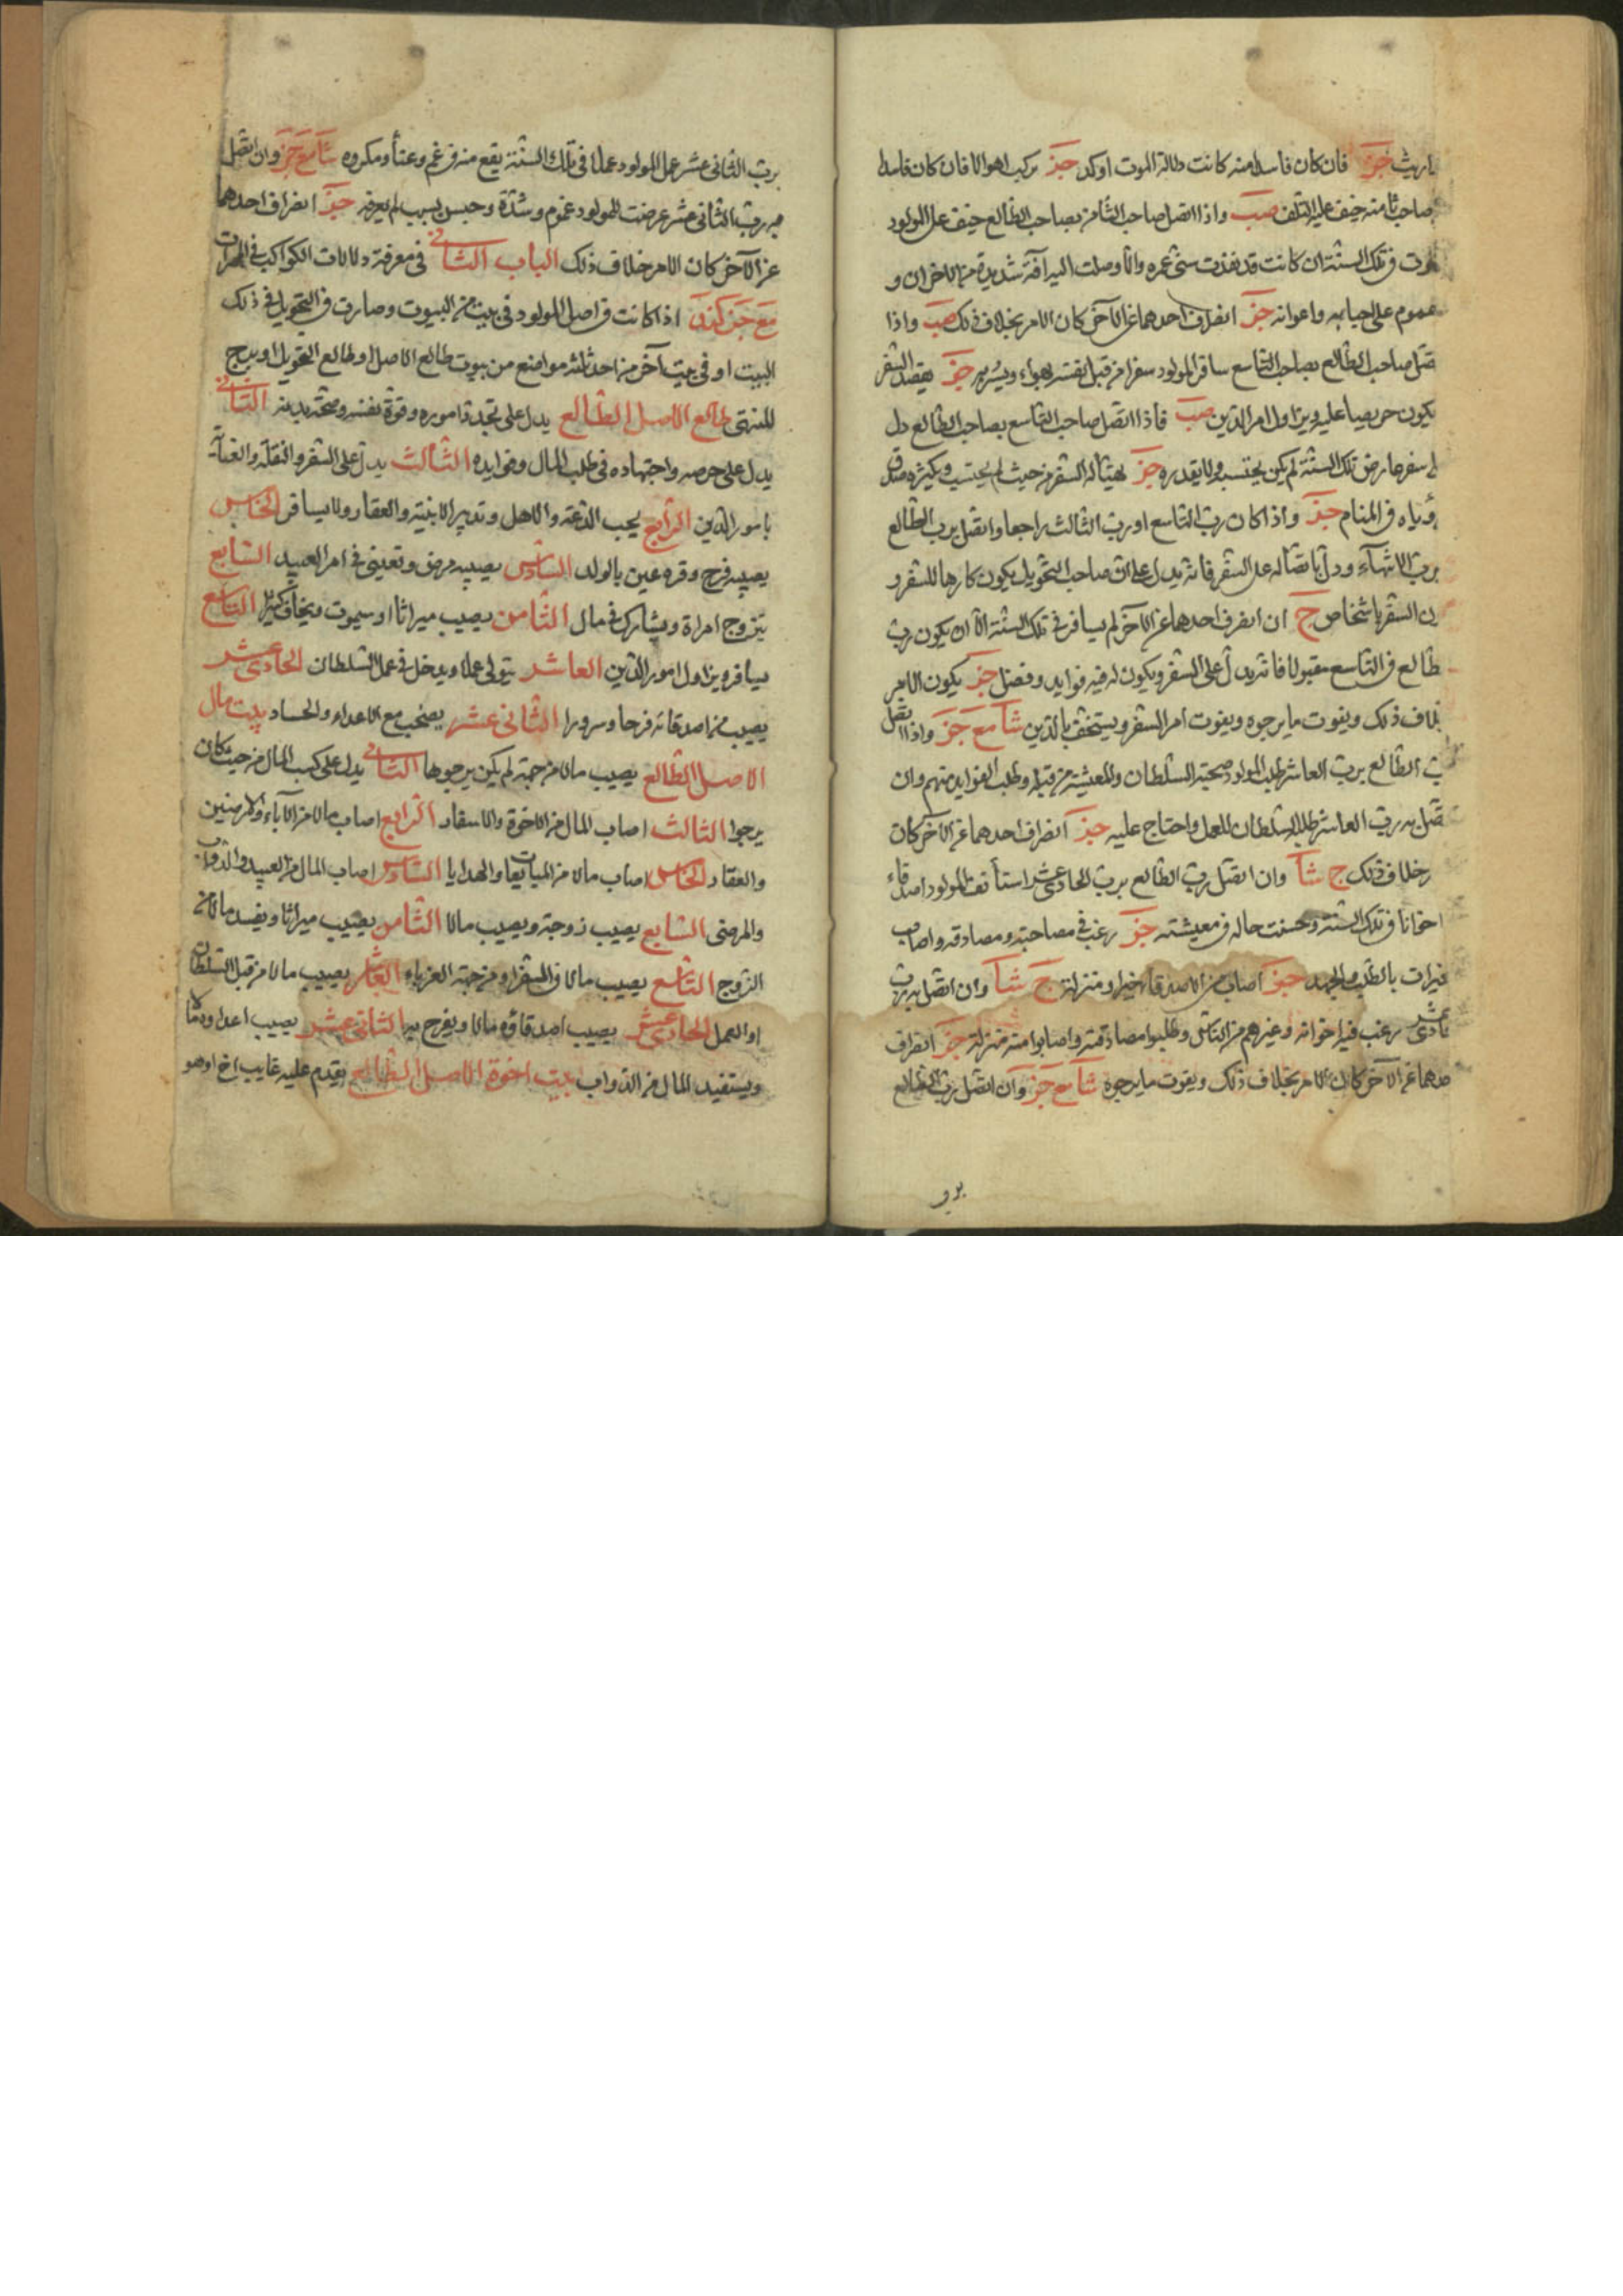 فان كان فاسدا منه كانت دلالة الموت اوكد جز يركب اهوالا فان كان فاسدا
صاحب ثامنه خيف عليه التلف صب واذا اتصل صاحب الثامن بصاحب الطالع خيف على المولود
فى تلك السنة ان كانت قد نفذت سنى عمره والا وصلت اليه آفة شديدة من الاحزان و
غموم على احبابه واعوانه جز انصراف احدهما عن الآخر كان الامر بخلاف ذلك صب واذا
صاحب الطالع بصاحب التاسع سافر المولود سفرا من قبل نفسه بهواه ويسر به جز يقصد السفر
يكون حريصا عليه ويزاول امر الدين صب فاذا اتصل صاحب التاسع بصاحب الطالع دل
سفر عارض تلك السنة لم يكن يحتسبه ولا يقدره جز تهيأ له السفر من حيث لم يحتسب ويكثر صدق
رؤياه فى المنام جز واذا كان رب التاسع او رب الثالث راجعا واتصل برب الطالع
ودل باتصاله على السفر فانه يدل على ان صاحب التحويل يكون كارها للسفر و
السفر باشخاص ج ان انصرف احدهما عن الآخر لم يسافر فى تلك السنة الا ان يكون رب
طالع فى التاسع مقبولا فانه يدل على السفر ويكون له فيه فوايد وفضل جز يكون الامر
بخلاف ذلك ويفوت ما يرجوه ويفوت امر السفر ويستخف بالدين شا مع جز واذا اتصل
رب الطالع برب العاشر طلب المولود صحبة السلطان والمعيشة من قبله وطلب الفوايد منهم وان
اتصل به رب العاشر طلبه السلطان للعمل واحتاج عليه جز انصراف احدهما عن الآخر كان
بخلاف ذلك ج شا وان اتصل رب الطالع برب الحادى عشر استأنف المولود اصدقاء
اخوانا فى تلك السنة وحسنت حاله فى معيشته جز رغب فى مصاحبته ومصادقته واصاب
خيرات بالطلب والجهد جز اصاب من الاصدقاء خيرا ومنزلة ج شا وان اتصل به رب
الحادى عشر رغب فيه اخوانه وغيرهم من الناس وطلبوا مصادقته واصابوا منه منزلة جز انصراف
احدهما عن الآخر كان الامر بخلاف ذلك ويفوت ما يرجوه شا مع جز وان اتصل رب الطالع
برب الثانى عشر عمل المولود عملا فى تلك السنة يقع منه فى غم وعنا ومكروه شا مع جز وان اتصل
به رب الثانى عشر عرضت للمولود غموم وشدة وحبس بسبب لم يعرفه جز انصراف احدهما
عن الآخر كان الامر خلاف ذلك الباب الثانى فى معرفة دلالات الكواكب فى
مع جز اذا كانت فى اصل المولود فى بيت من البيوت وصارت فى التحويل فى ذلك
البيت او فى بيت آخر من احد ثلثه مواضع من بيوت طالع الاصل او طالع التحويل او برج
المنتهى طالع الاصل الطالع يدل على تجدد اموره وقوة نفسه وصحة بدنه الثانى
يدل على حرصه واجتهاده فى طلب المال وفوايده الثالث يدل على السفر والنقلة والعناية
بامور الدين الرابع يحب الدعة والاهل وتدبير الابنية والعقار ولا يسافر الخامس
يصيبه فرح وقرة عين بالولد السادس يصيبه مرض وتعينى فى امر العبيد السابع
يتزوج امراة ويشارك فى مال الثامن يصيب ميراثا او سيموت ويخاف كثيرا التاسع
يسافر ويزاول امور الدين العاشر يتولى عملا ويدخل فى عمل السلطان الحادى عشر
يصيب من اصدقائه فرحا وسرورا الثانى عشر يصخب مع الاعداء والحساد بيت مال
الاصل الطالع يصيب مالا من جهة لم يكن يرجوها الثانى يدل على كسب المال من حيث كان
يرجوا الثالث اصاب المال من الاخوة والاسفار الرابع اصاب مالا من الآباء والارضين
والعقار الخامس اصاب مالا من المبايعات والهدايا السادس اصاب المال من العبيد والدواب
والمرضى السابع يصيب زوجة ويصيب مالا الثامن يصيب ميراثا ويفسد ماله
الزوج التاسع يصيب مالا فى السفر او من جهة الغرباء العاشر يصيب مالا من قبل السلطان
او العمل الحادى عشر يصيب اصدقاؤه مالا ويفرح بها الثانى عشر يصيب اعداوه مالا
ويستفيد المال من الدواب بيت اخوة الاصل الطالع يقدم عليه غايب اخ او هو